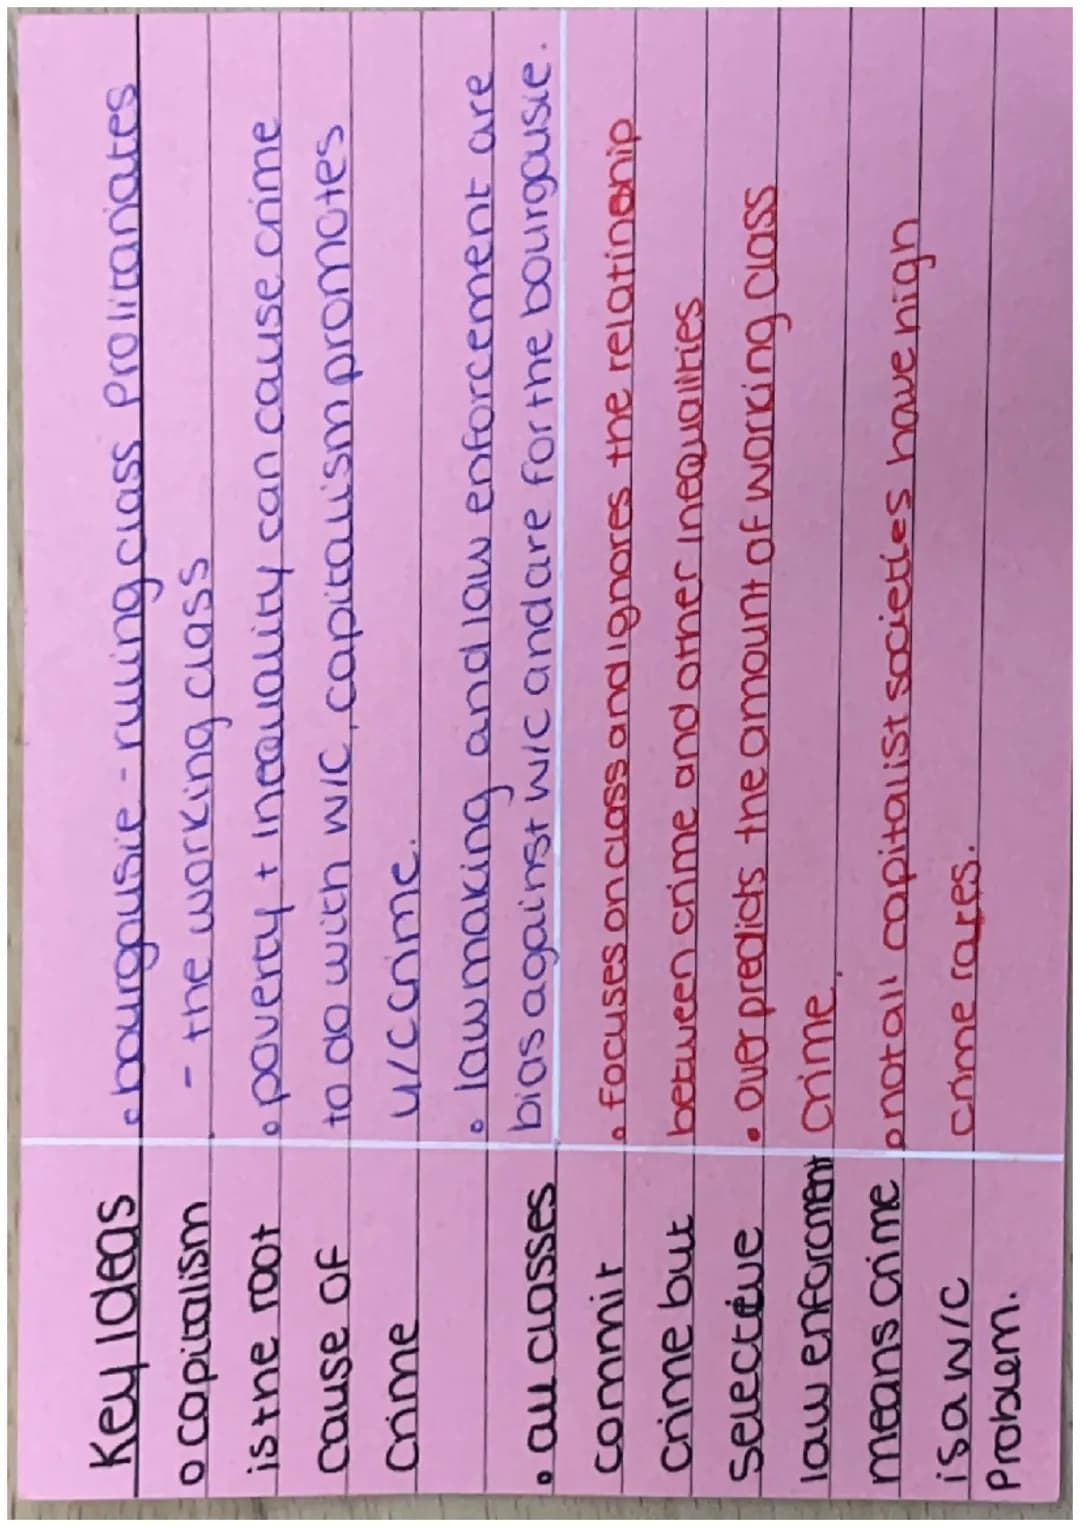 Key Ideas
o capitalism
is the root
cause of
crime
• all classes
commit
crime but
selective
law enforcment
means crime
is a w/c
problem.
• bourgousie - ruling class prolitariates
- the working class
• poverty + inequality can cause crime
to do with w/c, capitalism promotes
u/c crime.
• law making and law enforcement are
bias against w/c and are for the bourgousie.
• focuses on class and ignores the relatinship
between crime and other inequalities
• over predicts the amount of working class
crime.
• not all capitalist societies have high
crime rates.